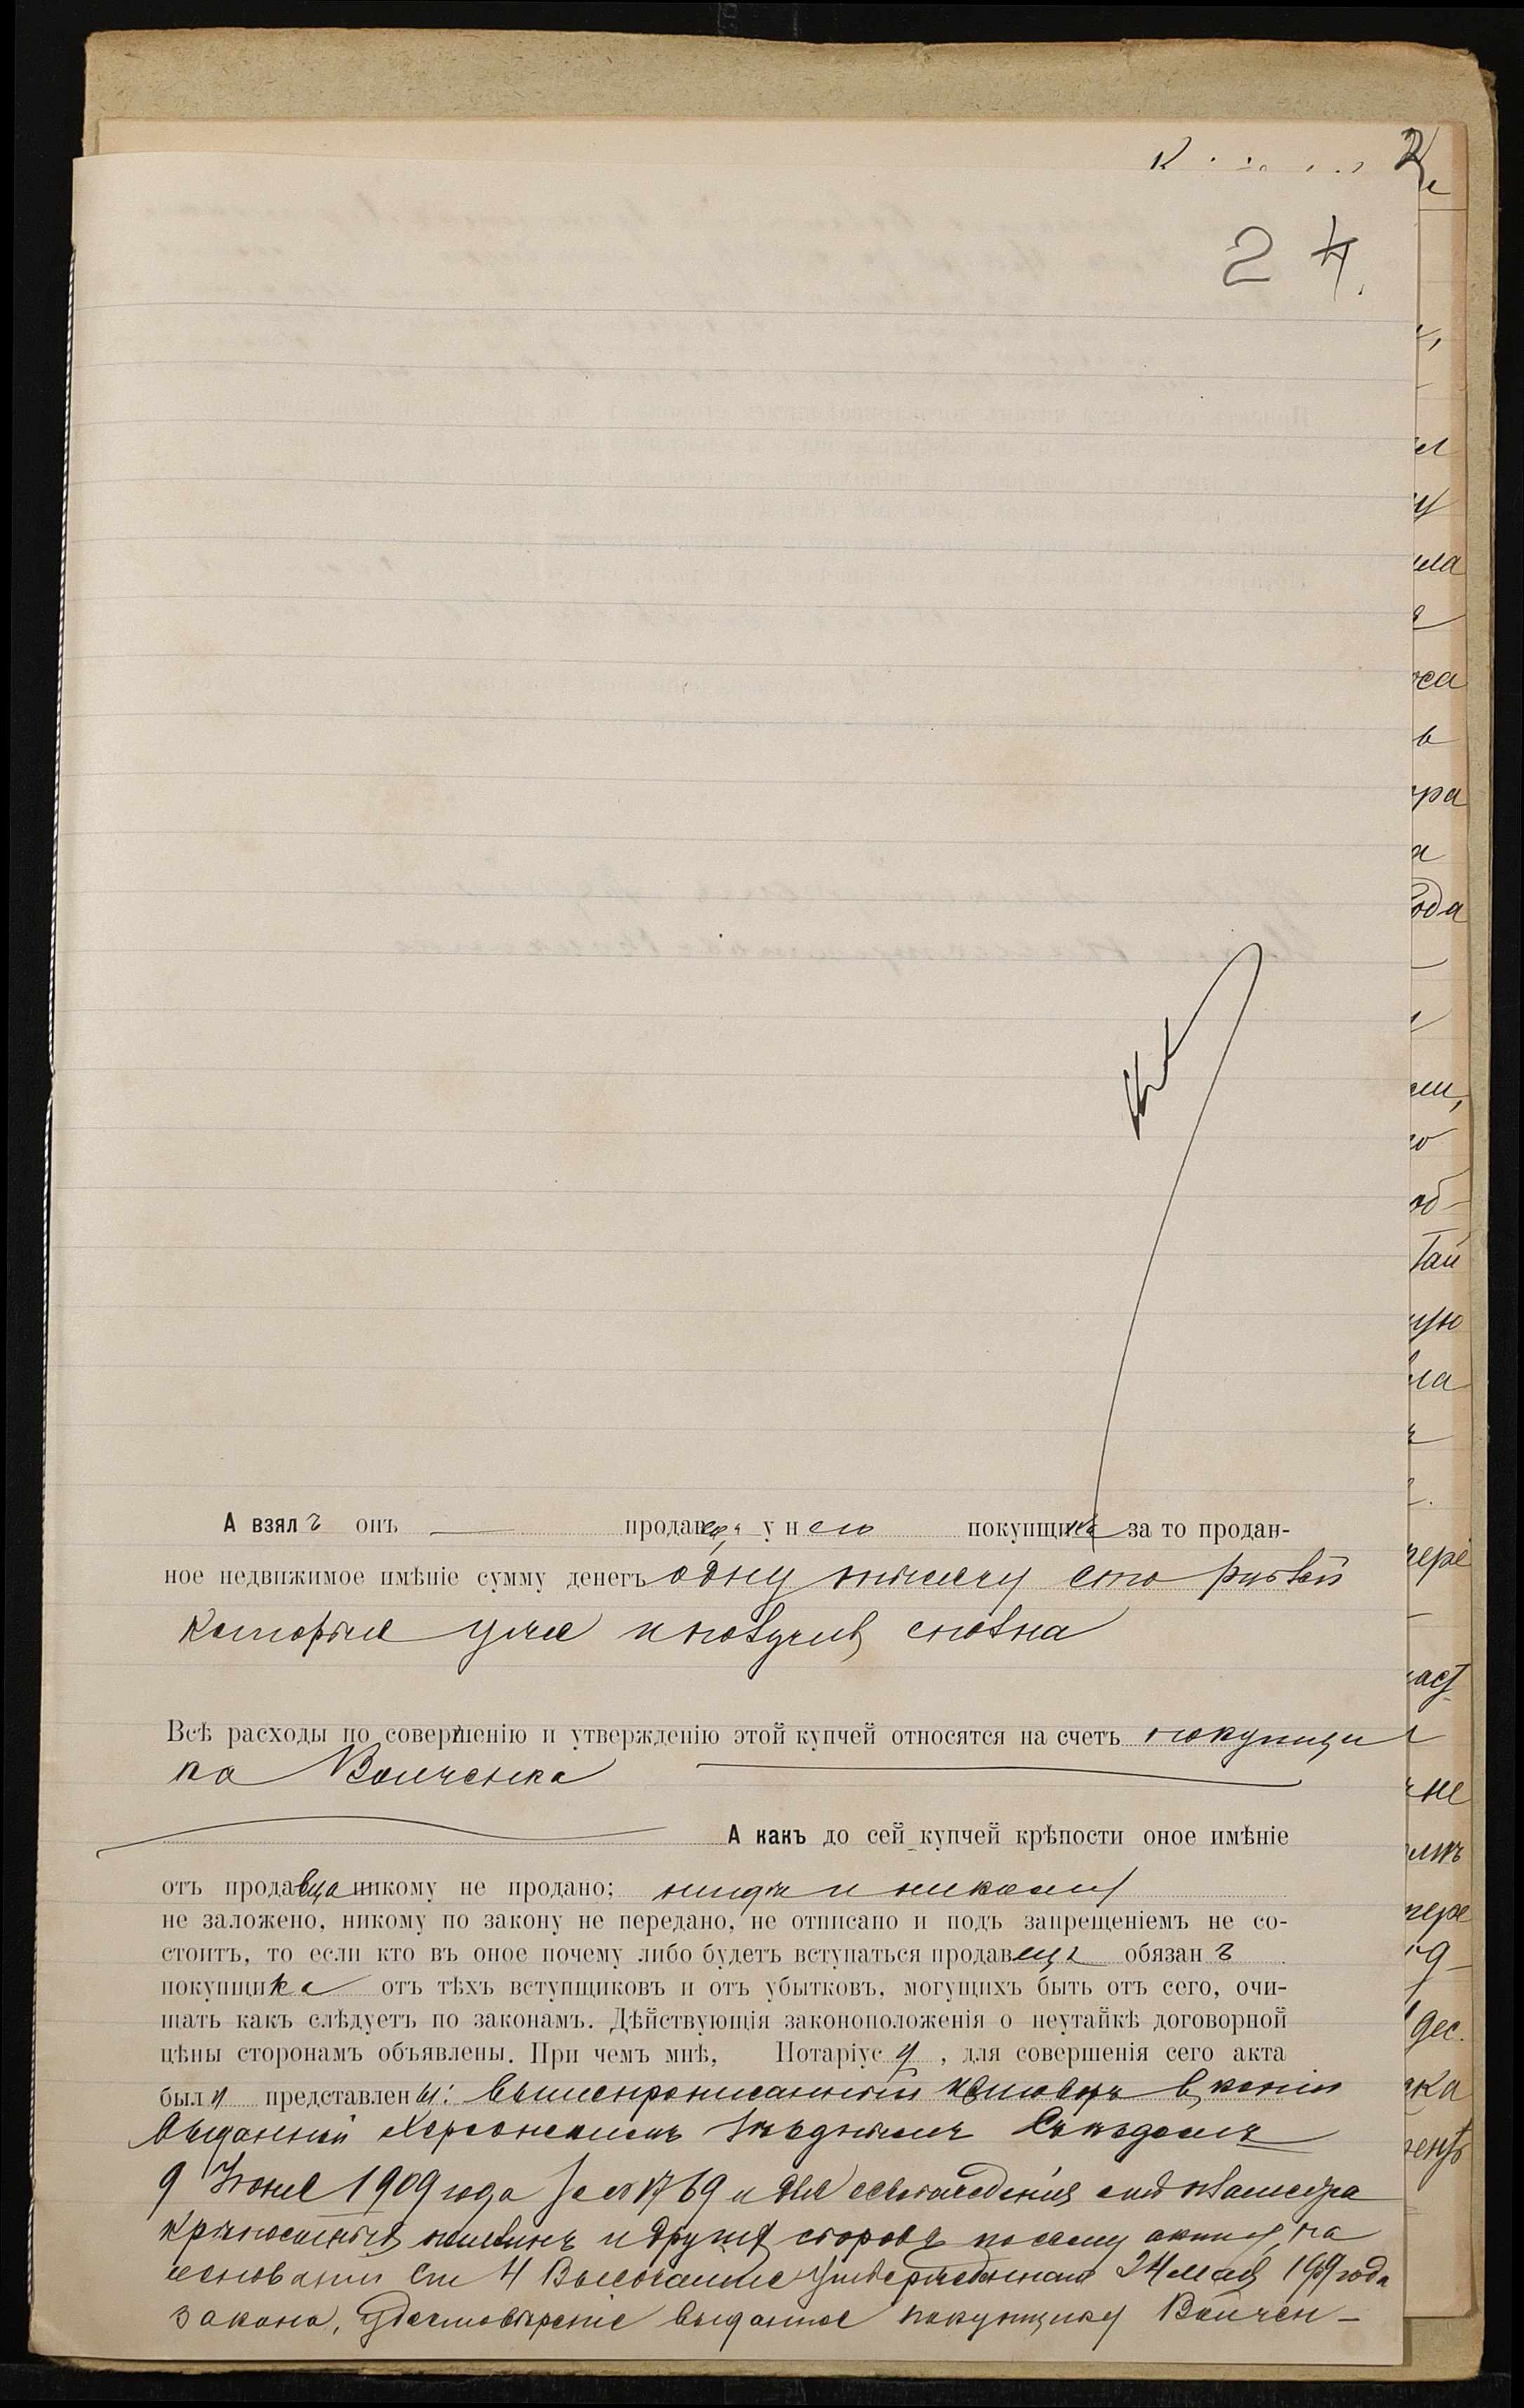 24.
А взялъ онъ продавецъ у него покупщика за то продан-
ное недвижимое имѣніе сумму денегъ одну тысячу сто рублей
которые уже и получилъ сполна
Всѣ расходы по совершенію и утвержденію этой купчей относятся на счетъ покупщи
ка
А какъ до сей купчей крѣпости оное имѣніе
отъ продавца никому не продано; нигдѣ и никому
не заложено, никому по закону не передано, не отписано и подъ запрещеніемъ не со-
стоитъ, то если кто въ оное почему либо будетъ вступаться продавецъ обязанъ
покупщика отъ тѣхъ вступщиковъ и отъ убытковъ, могущихъ быть отъ сего, очи-
щать какъ слѣдуетъ по законамъ. Дѣйствующія законоположенія о неутайкѣ договорной
цѣны сторонамъ объявлены. При чемъ мнѣ, Нотаріусу, для совершенія сего акта
были представлены: вышепрописанный въ копіи
выданный Херсонскимъ Уѣзднымъ Съѣздомъ
9 Іюня 1909 года за № 1769 и для освобожденія отъ платежа
крѣпостныхъ пошлинъ и другихъ сборовъ по сему акту, на
основаніи ст 4 Высочайше утвержденнаго 24 мая 1909 года
закона, удостовѣреніе выданное покупщику